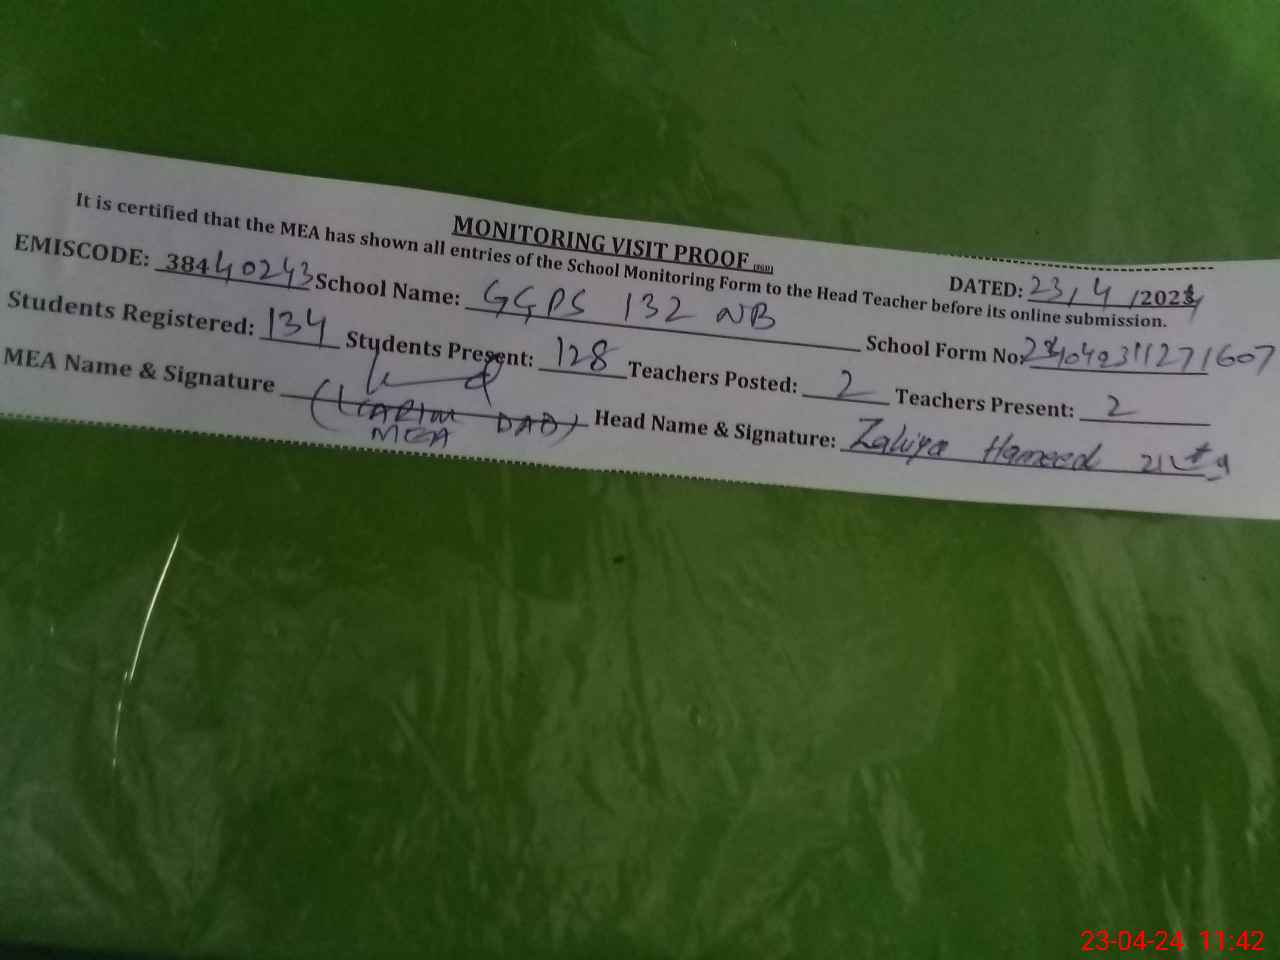 MONITORING VISIT PROOF
DATED: 23/4/2024
It is certified that the MEA has shown all entries of the School Monitoring Form to the Head Teacher before its online submission.
EMISCODE: 38440243 School Name: GGPS 132 NB School Form No:
Students Registered: 134 Students Present: 128 Teachers Posted: 2 Teachers Present: 2
MEA Name & Signature (KARIM DAD) Head Name & Signature: Zakiya Hameed
MEA
23-04-24 11:42